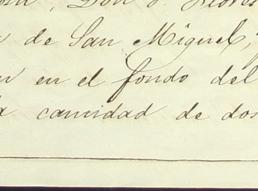 Don
de San Miguel,
en el fondo del
camidad de dos